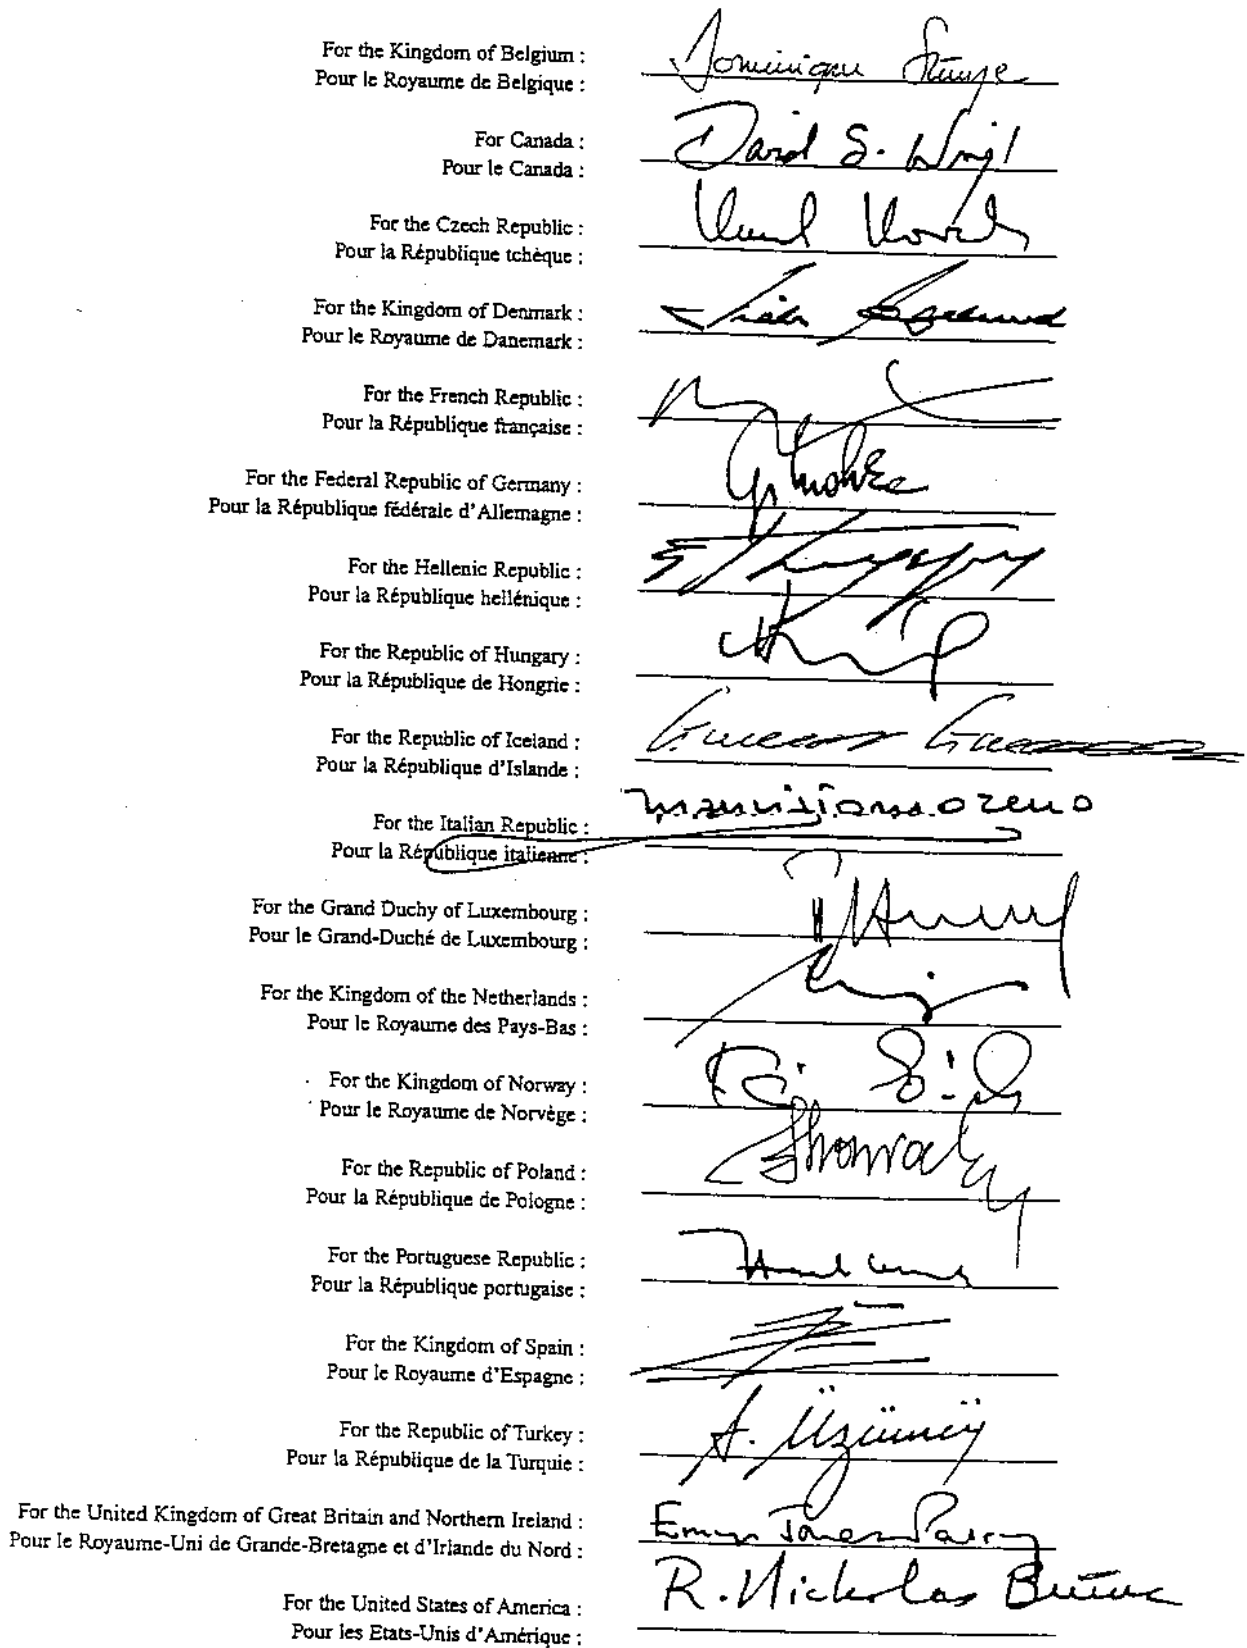 For the Kingdom of Belgium :
Pour le Royaume de Belgique :
Dominique Struye
For Canada :
Pour le Canada :
David S. Wright
For the Czech Republic :
Pour la République tchèque :
For the Kingdom of Denmark :
Pour le Royaume de Danemark :
For the French Republic :
Pour la République française :
For the Federal Republic of Germany :
Pour la République fédérale d'Allemagne :
For the Hellenic Republic :
Pour la République hellénique :
For the Republic of Hungary :
Pour la République de Hongrie :
For the Republic of Iceland :
Pour la République d'Islande :
For the Italian Republic :
Pour la République italienne :
For the Grand Duchy of Luxembourg :
Pour le Grand-Duché de Luxembourg :
For the Kingdom of the Netherlands :
Pour le Royaume des Pays-Bas :
For the Kingdom of Norway :
Pour le Royaume de Norvège :
For the Republic of Poland :
Pour la République de Pologne :
For the Portuguese Republic :
Pour la République portugaise :
For the Kingdom of Spain :
Pour le Royaume d'Espagne :
For the Republic of Turkey :
Pour la République de la Turquie :
A.
For the United Kingdom of Great Britain and Northern Ireland :
Pour le Royaume-Uni de Grande-Bretagne et d'Irlande du Nord :
Emyr Jones Parry
For the United States of America :
Pour les Etats-Unis d'Amérique :
R. Nicholas Burns